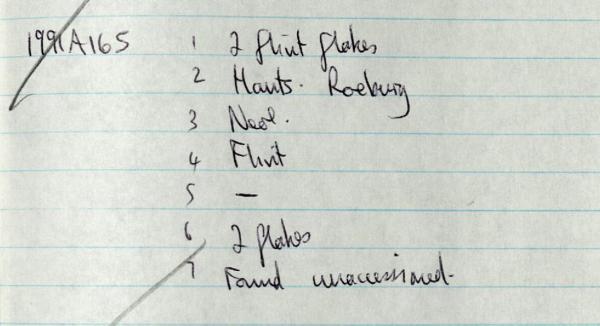 1991A165 1 2 flint flakes
2 Hants. Roeburg
3 Neol.
4 Flint
5 —
6 2 flakes
7 Found unaccessioned.